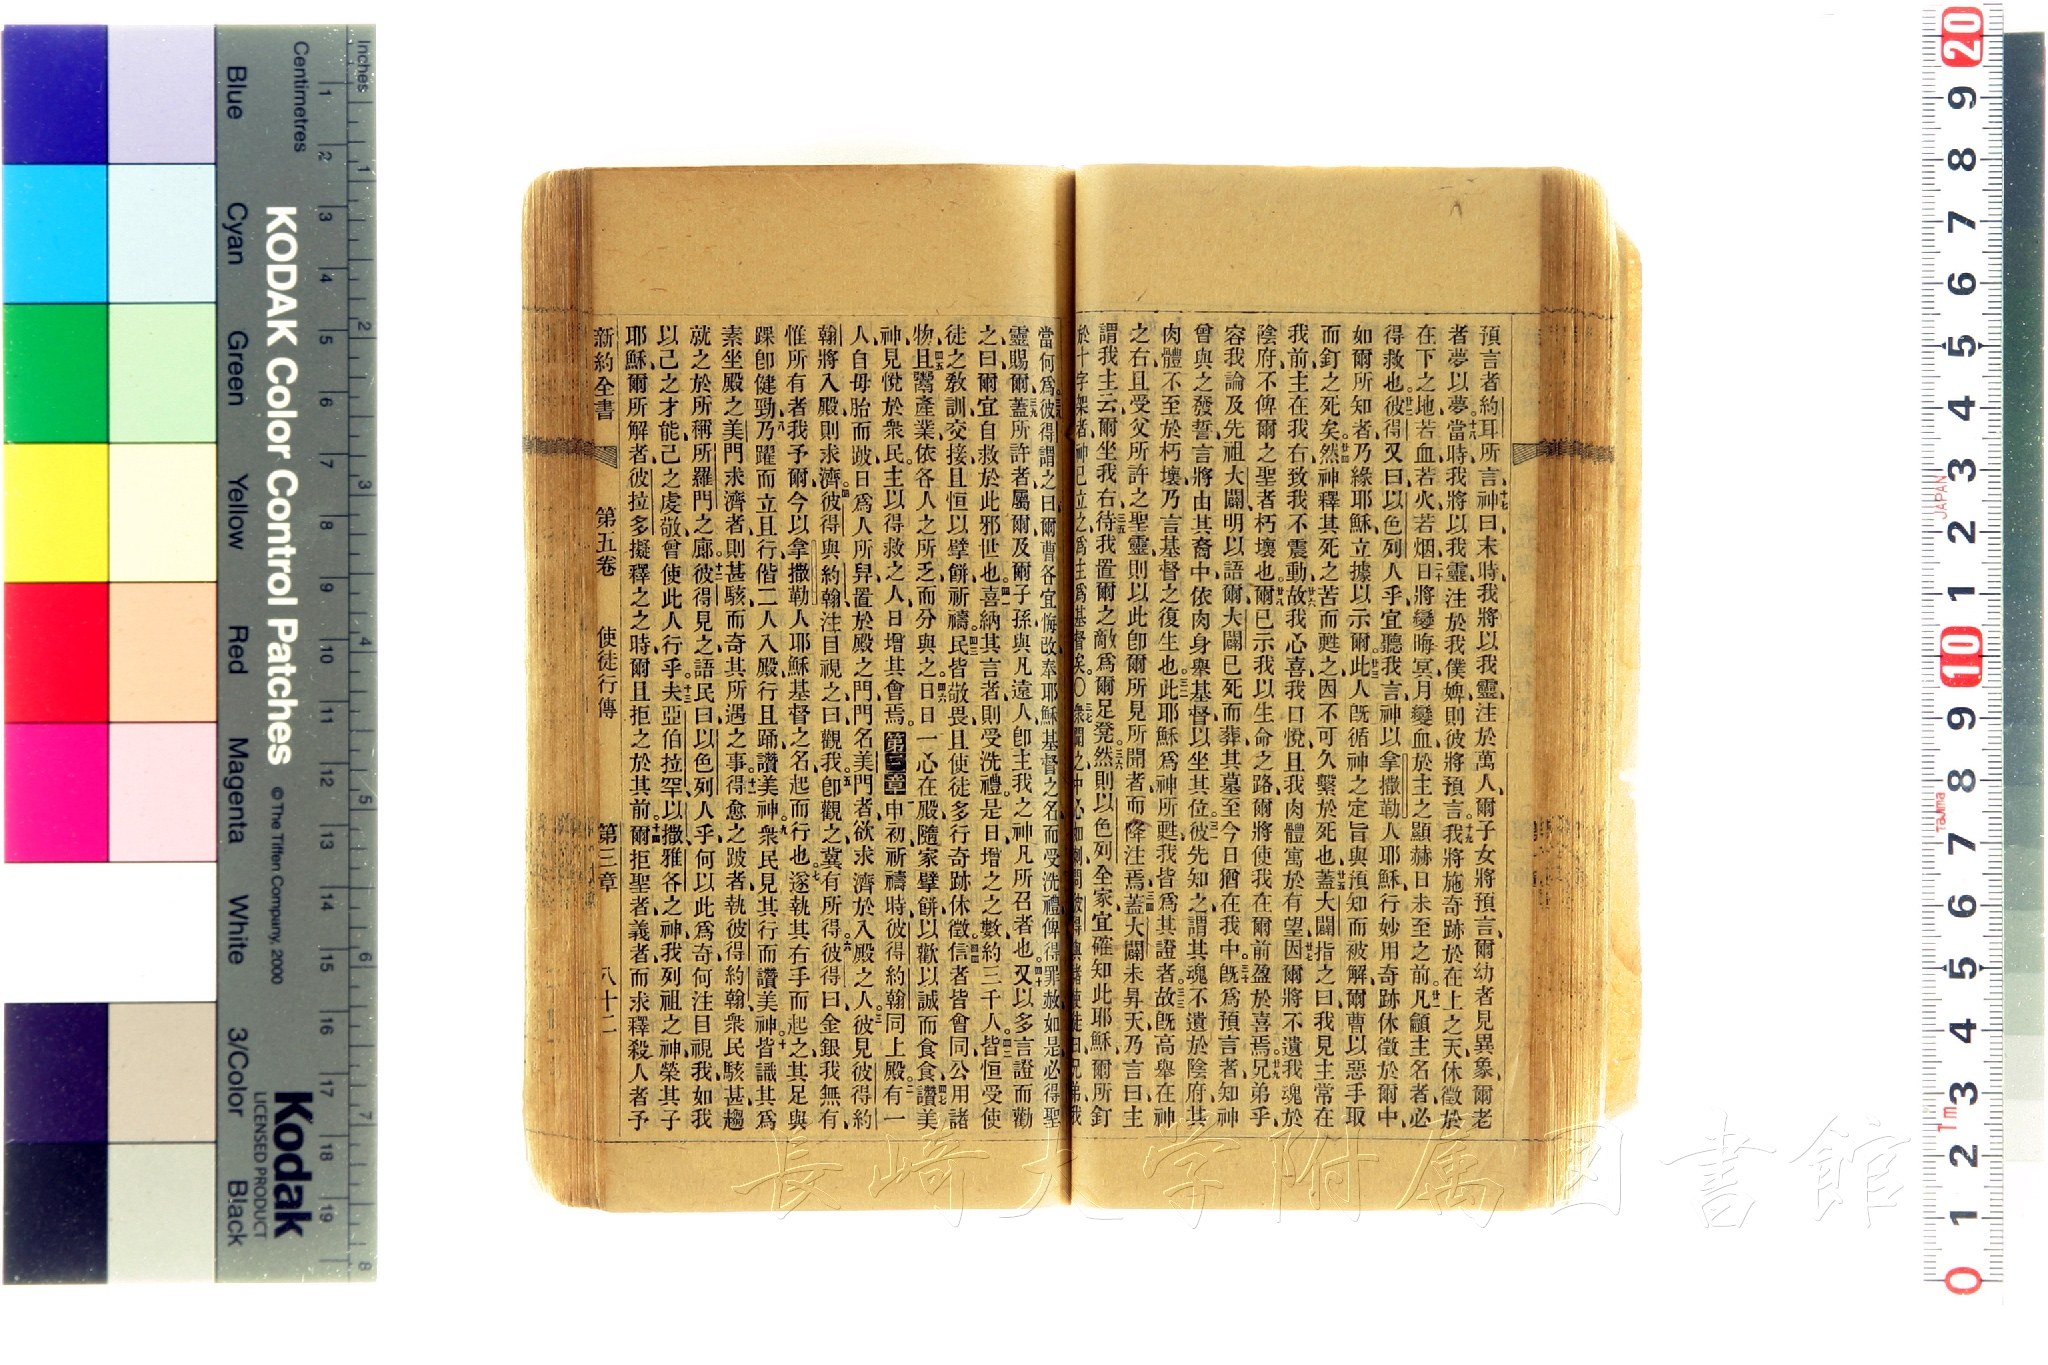 預言者約耳所言、十七神曰末時我將以我靈注於萬人、爾子女將預言、爾幼者見異象、爾老
者夢以夢、十八當時我將以我靈注於我僕婢、則彼將預言、十九我將施奇跡於在上之天、休徵於
在下之地、若血若火若烟、二十日將變晦冥、月變血、於主之顯赫日未至之前、廿一凡籲主名者必
得救也、廿二彼得又曰、以色列人乎、宜聽我言、神以拿撒勒人耶穌行妙用奇跡休徵於爾中、
如爾所知者、乃緣耶穌立據以示爾、廿三此人旣循神之定旨與預知而被解、爾曹以惡手取
而釘之死矣、廿四然神釋其死之苦而甦之、因不可久繫於死也、廿五蓋大闢指之曰、我見主常在
我前、主在我右、致我不震動、廿六故我心喜、我口悅、且我肉體寓於有望、廿七因爾將不遺我魂於
陰府、不俾爾之聖者朽壞也、廿八爾已示我以生命之路、爾將使我在爾前盈於喜焉、廿九兄弟乎、
容我論及先祖大闢明以語爾、大闢已死而葬、其墓至今日猶在我中、三十旣爲預言者、知神
曾與之發誓、言將由其裔中、依肉身舉基督以坐其位、三一彼先知之、謂其魂不遺於陰府、其
肉體不至於朽壞、乃言基督之復生也、三二此耶穌爲神所甦、我皆爲其證者、三三故旣高舉在神
之右、且受父所許之聖靈、則以此卽爾所見所聞者而降注焉、三四蓋大闢未昇天、乃言曰、主
謂我主云、爾坐我右、三五待我置爾之敵爲爾足凳、三六然則以色列全家、宜確知此耶穌爾所釘
於十字架者、神已立之爲主爲基督矣、〇三七衆聞之、中心如刺、問彼得與諸使徒曰、兄弟、我
當何爲、三八彼得謂之曰、爾曹各宜悔改、奉耶穌基督之名而受洗禮、俾得罪赦、如是必得聖
靈賜爾、三九蓋所許者屬爾及爾子孫、與凡遠人、卽主我之神凡所召者也、四十又以多言證而勸
之曰、爾宜自救於此邪世也、四一喜納其言者、則受洗禮、是日增之之數、約三千人、四二皆恒受使
徒之敎訓交接、且恒以擘餅祈禱、四三民皆敬畏、且使徒多行奇跡休徵、四四信者皆會同公用諸
物、四五且鬻產業、依各人之所乏而分與之、四六日日一心在殿、隨家擘餅、以歡以誠而食食、四七讚美
神、見悅於衆民、主以得救之人日增其會焉、第三章申初祈禱時、彼得約翰同上殿、二有一
人自母胎而跛、日爲人所舁、置於殿之門、門名美門者、欲求濟於入殿之人、三彼見彼得約
翰將入殿、則求濟、四彼得與約翰注目視之、曰、觀我、五卽觀之、冀有所得、六彼得曰、金銀我無有、
惟所有者我予爾、今以拿撒勒人耶穌基督之名起而行也、七遂執其右手而起之、其足與
踝卽健勁、八乃躍而立且行、偕二人入殿、行且踊、讚美神、九衆民見其行而讚美神、十皆識其爲
素坐殿之美門求濟者、則甚駭而奇其所遇之事、十一得愈之跛者、執彼得約翰、衆民駭甚、趨
就之於所稱所羅門之廊、十二彼得見之、語民曰、以色列人乎、何以此爲奇、何注目視我、如我
以己之才能、己之虔敬、曾使此人行乎、十三夫亞伯拉罕以撒雅各之神、我列祖之神、榮其子
耶穌、爾所解者、彼拉多擬釋之、之時、爾且拒之於其前、十四爾拒聖者義者、而求釋殺人者予
新約全書　第五卷　使徒行傳　第三章　八十二
長崎大学附属図書館
Inches
Centimetres
KODAK Color Control Patches
© The Tiffen Company, 2000
Kodak
LICENSED PRODUCT
Blue Cyan Green Yellow Red Magenta White 3/Color Black
JAPAN
Tajima